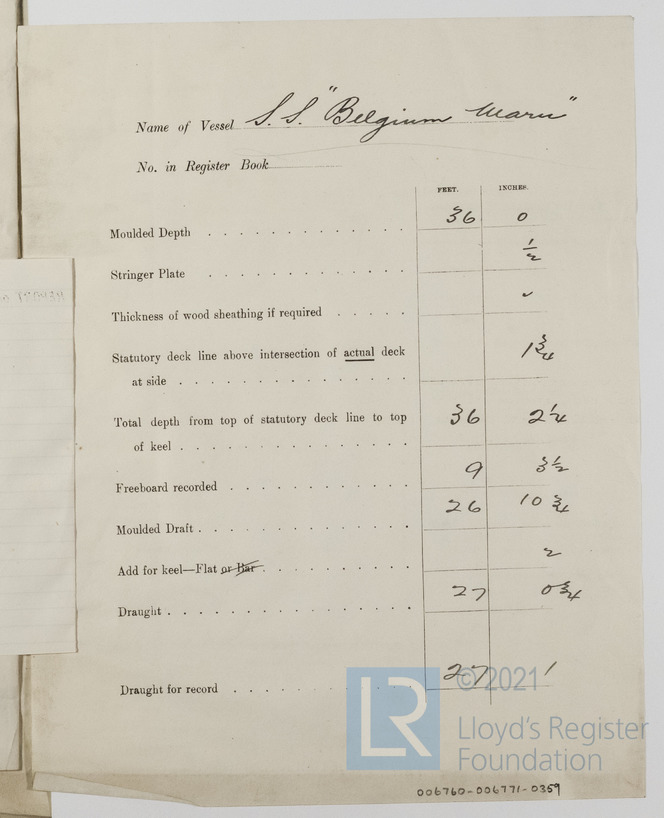 Name of Vessel S.S. "Belgium Maru"
No. in Register Book
FEET. INCHES.
Moulded Depth 36 0
Stringer Plate 1/2
Thickness of wood sheathing if required ✓
Statutory deck line above intersection of actual deck
at side 1 3/4
Total depth from top of statutory deck line to top
of keel 36 2 1/4
Freeboard recorded 9 3 1/2
Moulded Draft 26 10 3/4
Add for keel—Flat or Bar 2
Draught 27 0 3/4
Draught for record 27 1
LR
© 2021
Lloyd's Register
Foundation
006760-006771-0359